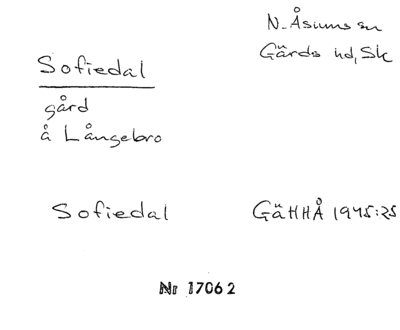 N. Åsums sn
Gärds hd, Sk
Sofiedal
gård
å Långebro
Sofiedal
GäHHÅ 1945:25
Nr 17062